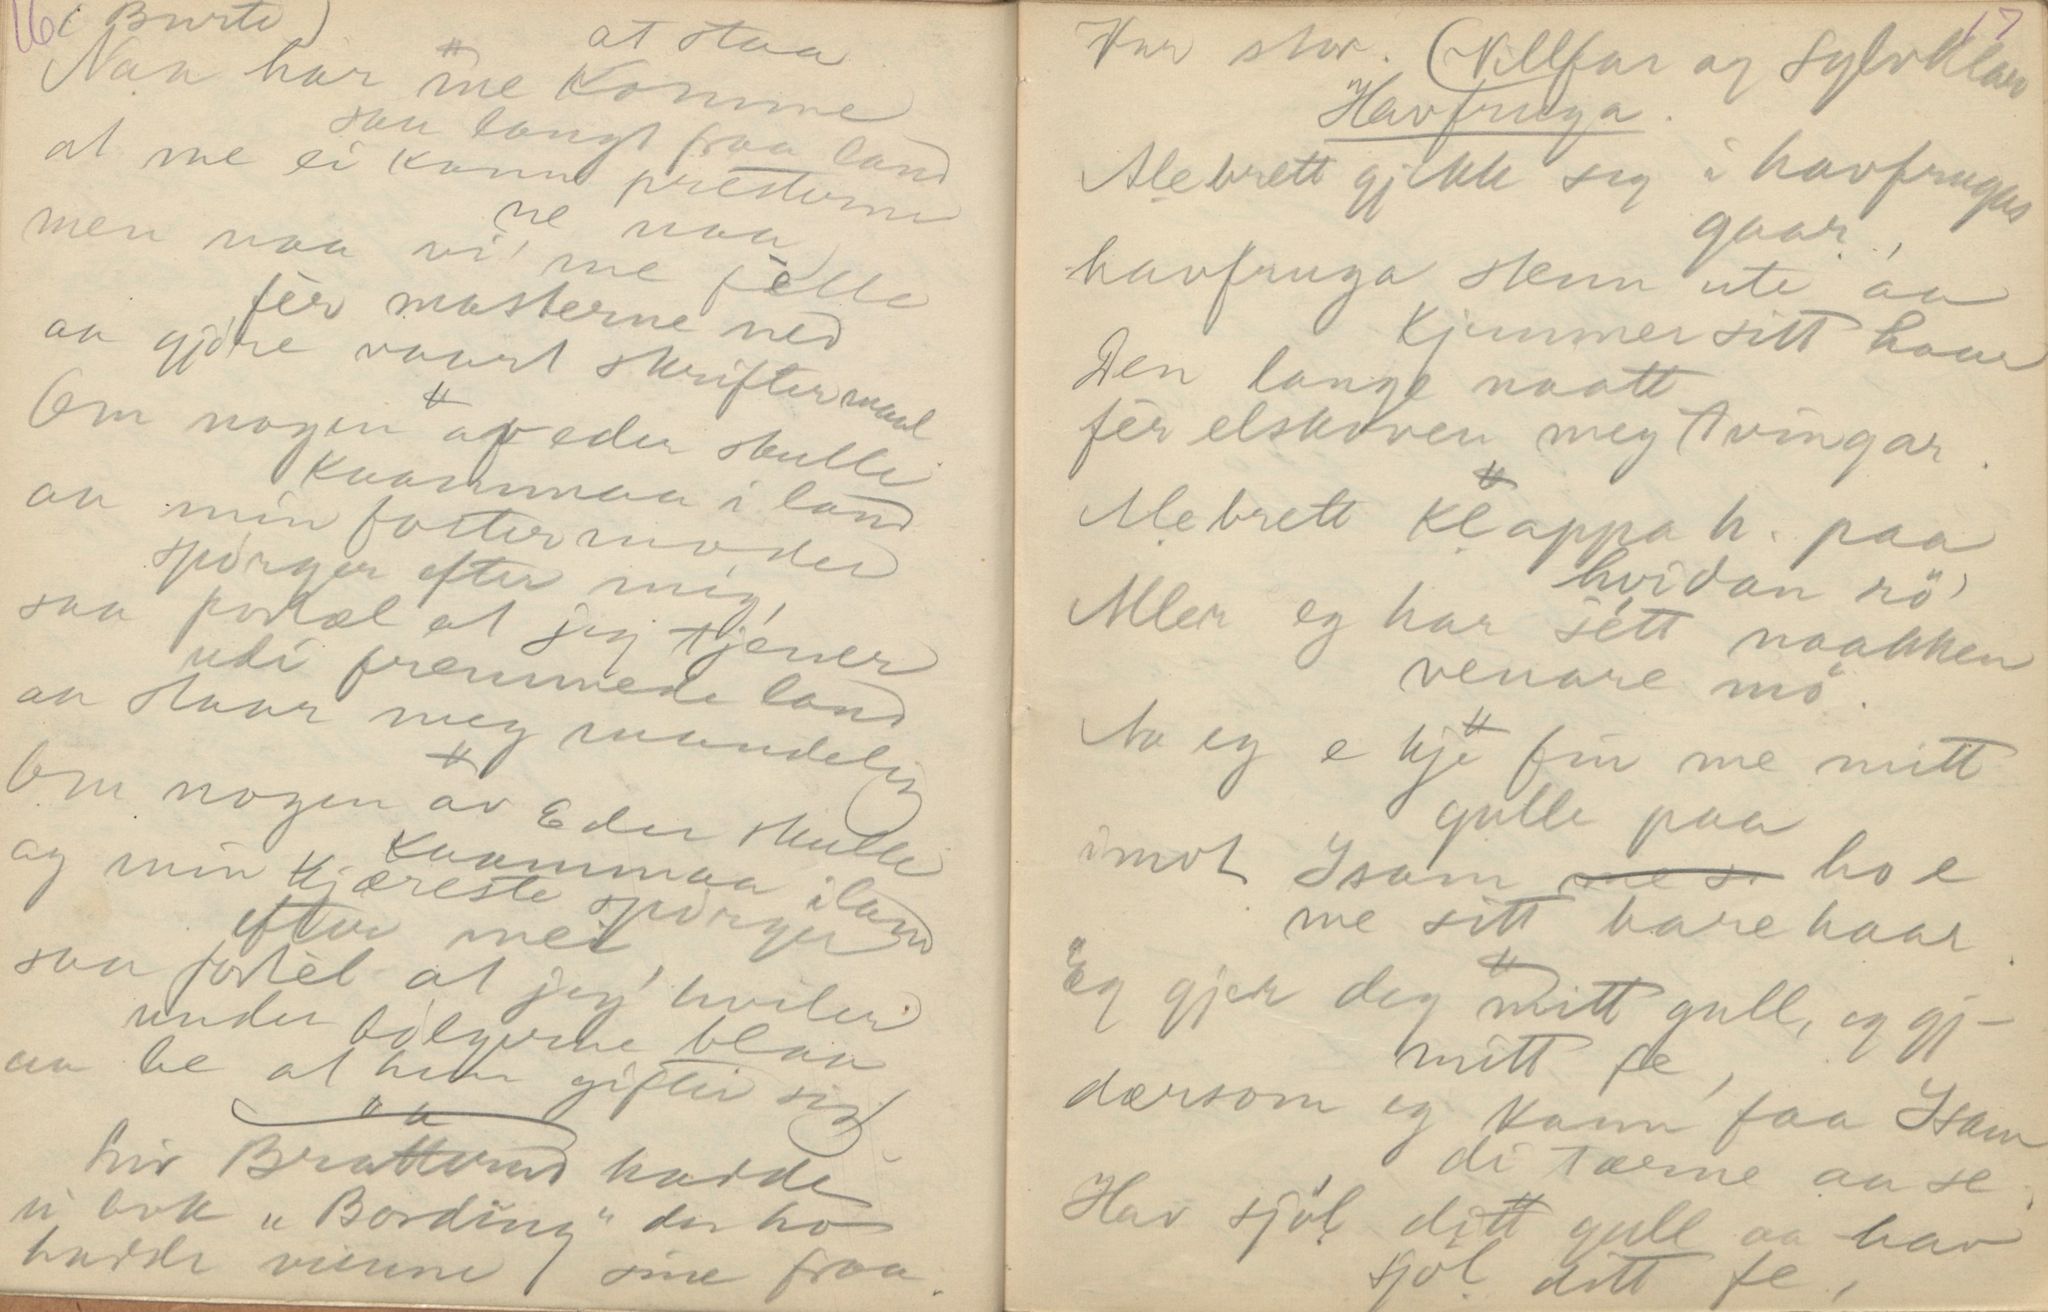 16 ( Burte )
at staa
Naa har me komme
saa langt fraa land
at me ei kann presterne
ne naa
men naa vi me felle
fér masterne ned
aa gjöre vaart skriftermaal
Om nogen av eder skulle
kaammaa i land
aa min fostermoder
spörger efter mig,
saa fortæl at jeg tjener
udi fremmede land
aa staar meg mandelig
Om nogen av Eder skulle
kaammaa i land
og min kjæreste spörger
efter mei
saa fortél at jeg hviler
under bölgerne blaa
aa be at han gifter sig
Liv Brattum hadde
ei bok "Bording" der ho
hadde visune sine fraa.
17
Var stor. (Villfar og Sylvklar
Havfruga.
Alebrett gjekk seg i havfrugas
gaar,
havfruga stenn ute aa
kjemmer sitt haar
Den lange naatt
fér elskoven meg tvingar.
Alebrett klappa h. paa
hvidan rö'
Aller eg har sétt naakken
venare mö.
Aa eg e kje fin me mitt
gulle paa
imot Isam ho e
me sitt bare haar.
Eg gjer deg mitt gull, eg gj-
mitt fe,
dærsom eg kann faa Isam
di tærne aa se.
Hav sjöl ditt gull aa hav
sjöl ditt fe,